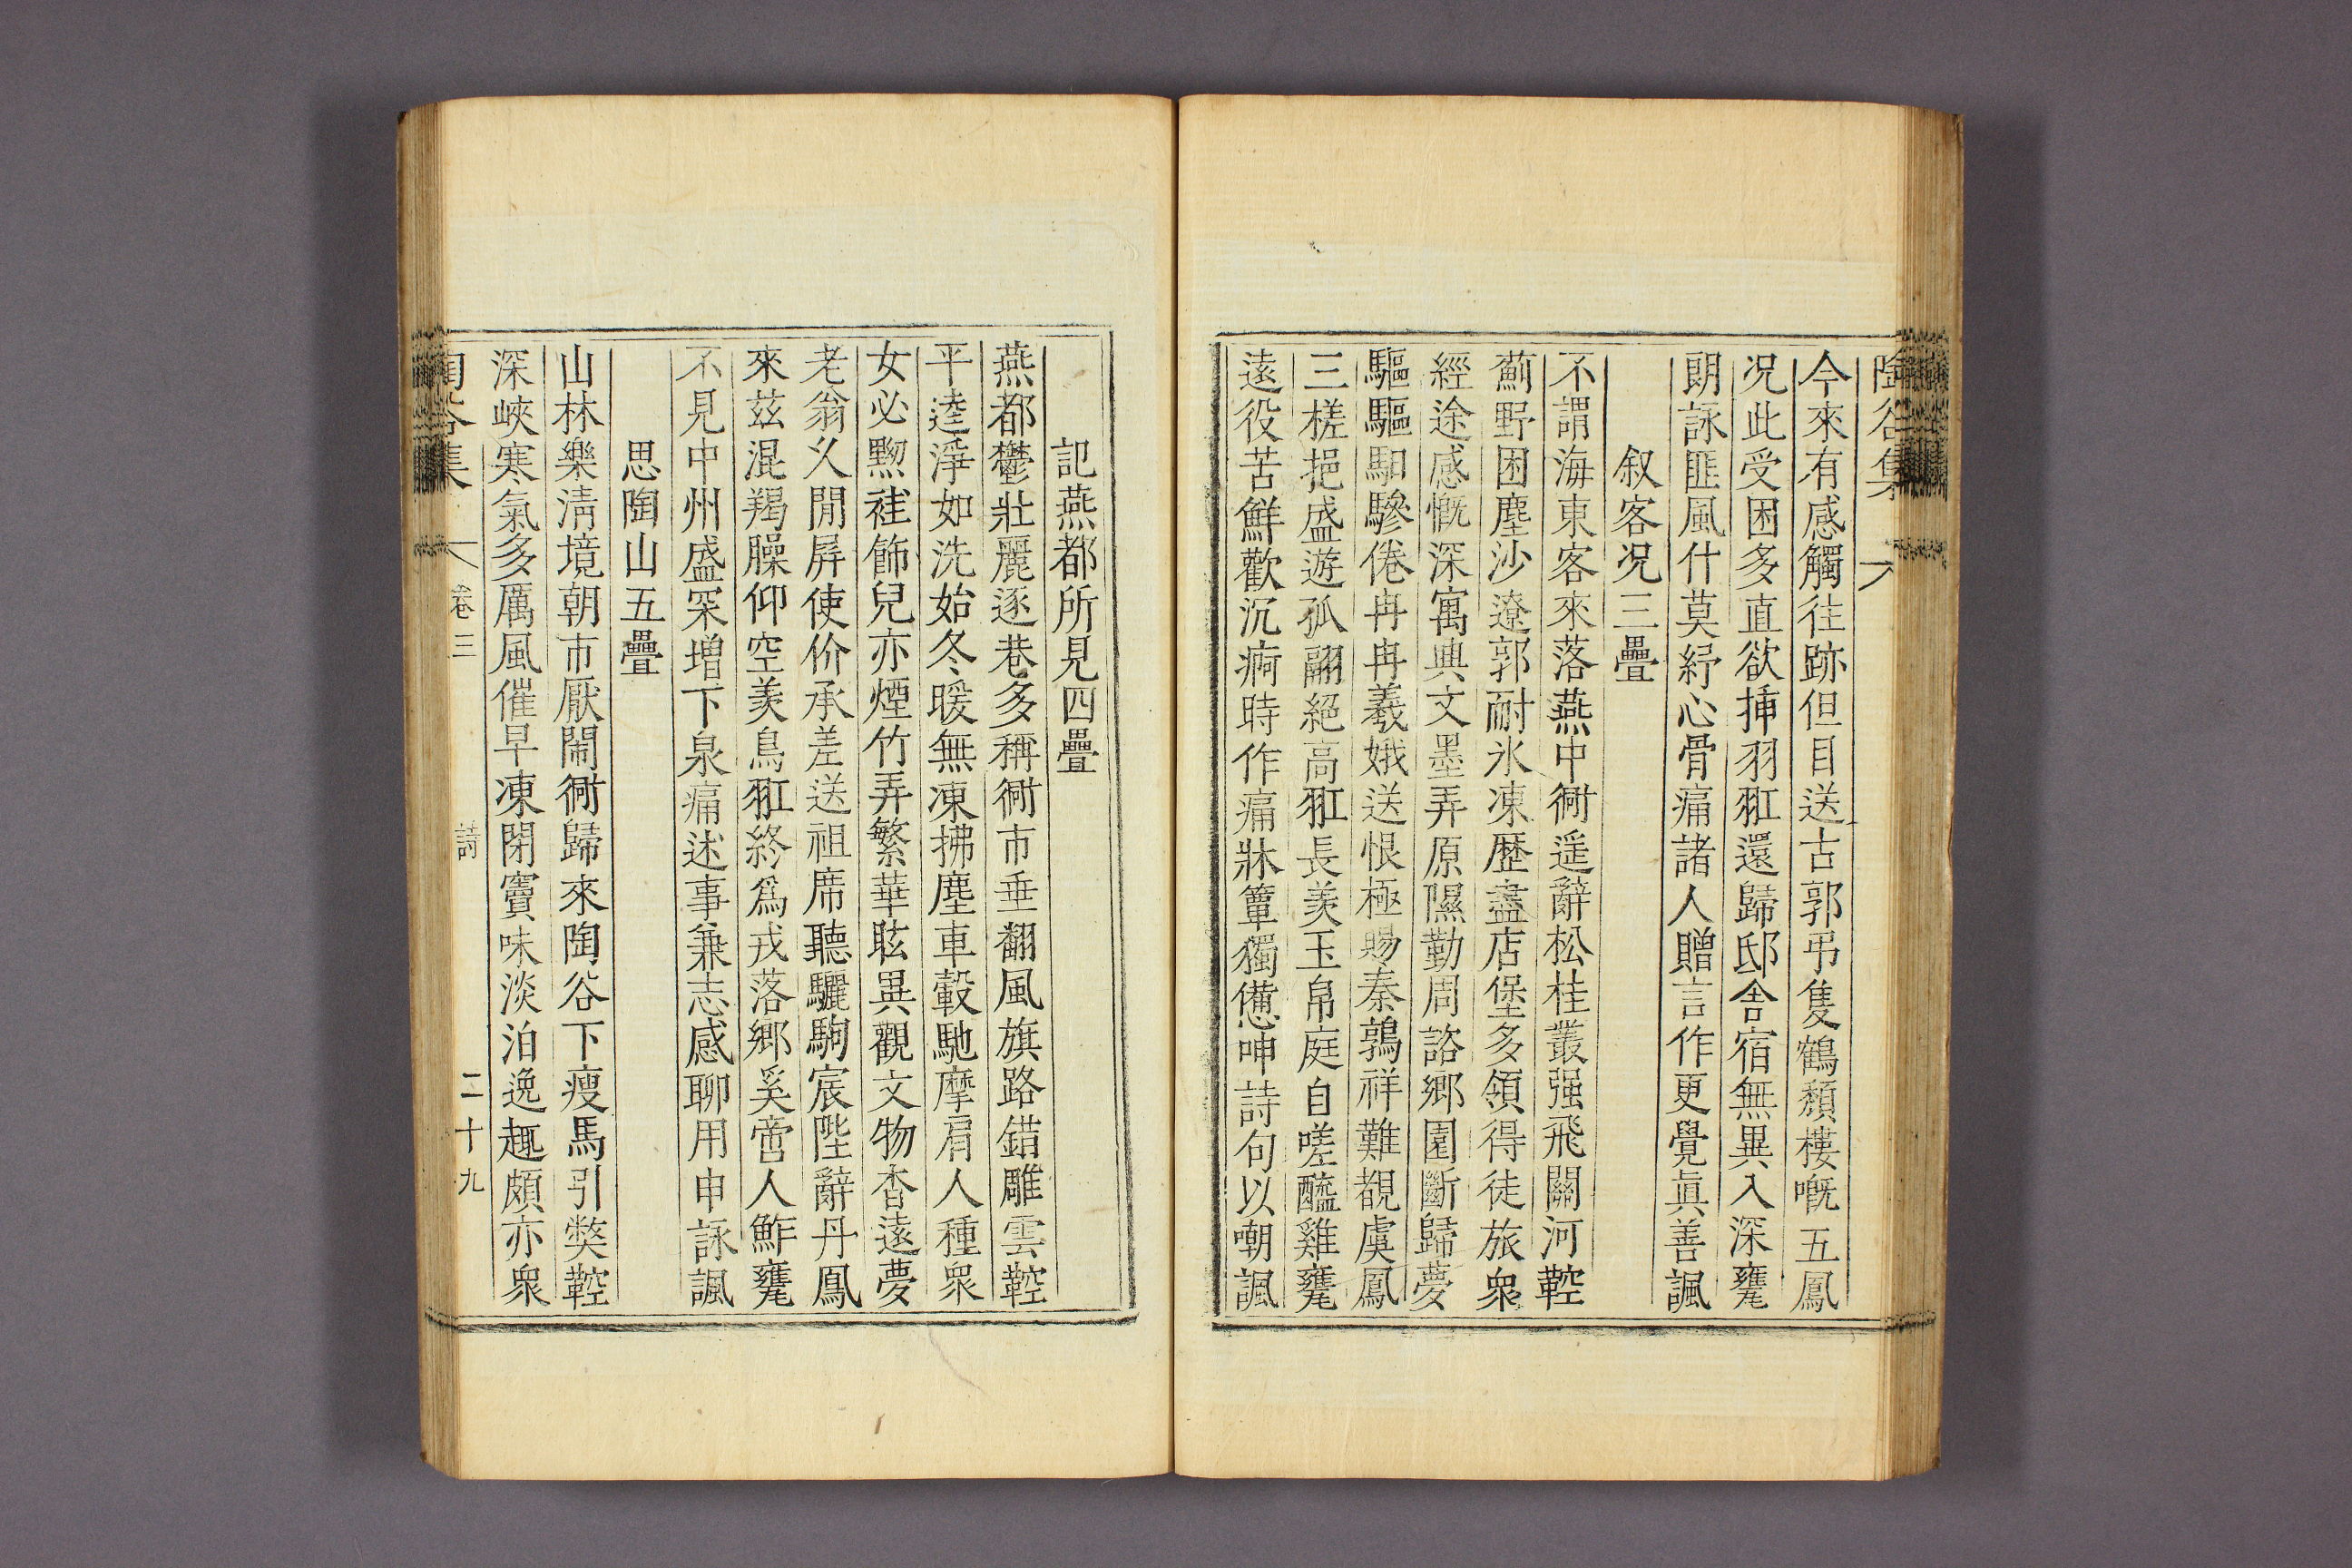 陶谷集
今來有感觸往跡但目送古郭弔隻鶴頹樓嘅五鳳
况此受困多直欲揷羽𦐩還歸邸舍宿無異入深甕
朗詠匪風什莫紓心骨痛諸人贈言作更覺眞善諷
叙客况三疊
不謂海東客來落燕中衕遥辭松桂叢强飛關河鞚
薊野困塵沙遼郭耐氷凍歷盡店堡多領得徒旅衆
經途感慨深寓興文墨弄原隰勤周諮鄉園斷歸夢
驅驅馹驂倦冉冉羲娥送恨極賜秦鶉祥難覩虞鳳
三槎挹盛遊孤翮絕高𦐩長羡玉帛庭自嗟醯雞甕
遠役苦鮮歡沉痾時作痛牀簟獨憊呻詩句以嘲諷
記燕都所見四疊
燕都鬱壯麗逐巷多稱衕市垂翻風旗路錯雕雲鞚
平逵淨如洗始冬暖無凍拂塵車轂馳摩肩人種衆
女必䵩袿飾兒亦煙竹弄繁華眩異觀文物杳遠夢
老翁久閒屏使价承差送祖席聽驪駒宸陛辭丹鳳
來茲混羯臊仰空羡鳥𦐩終爲戎落鄉奚啻人鮓甕
不見中州盛罙增下泉痛述事兼志感聊用申詠諷
思陶山五疊
山林樂淸境朝市厭鬧衕歸來陶谷下瘦馬引弊鞚
深峽寒氣多厲風催早凍閉竇味淡泊逸趣頗亦衆
陶谷集 卷三 詩 二十九